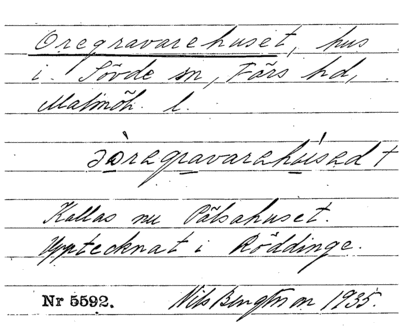 Oregravarehuset, hus
i Sövde sn, Färs hd,
Malmöh. l.
Kallas nu Pålsahuset.
Upptecknat i Röddinge.
Nr 5592. Nils Bengtsson 1935.